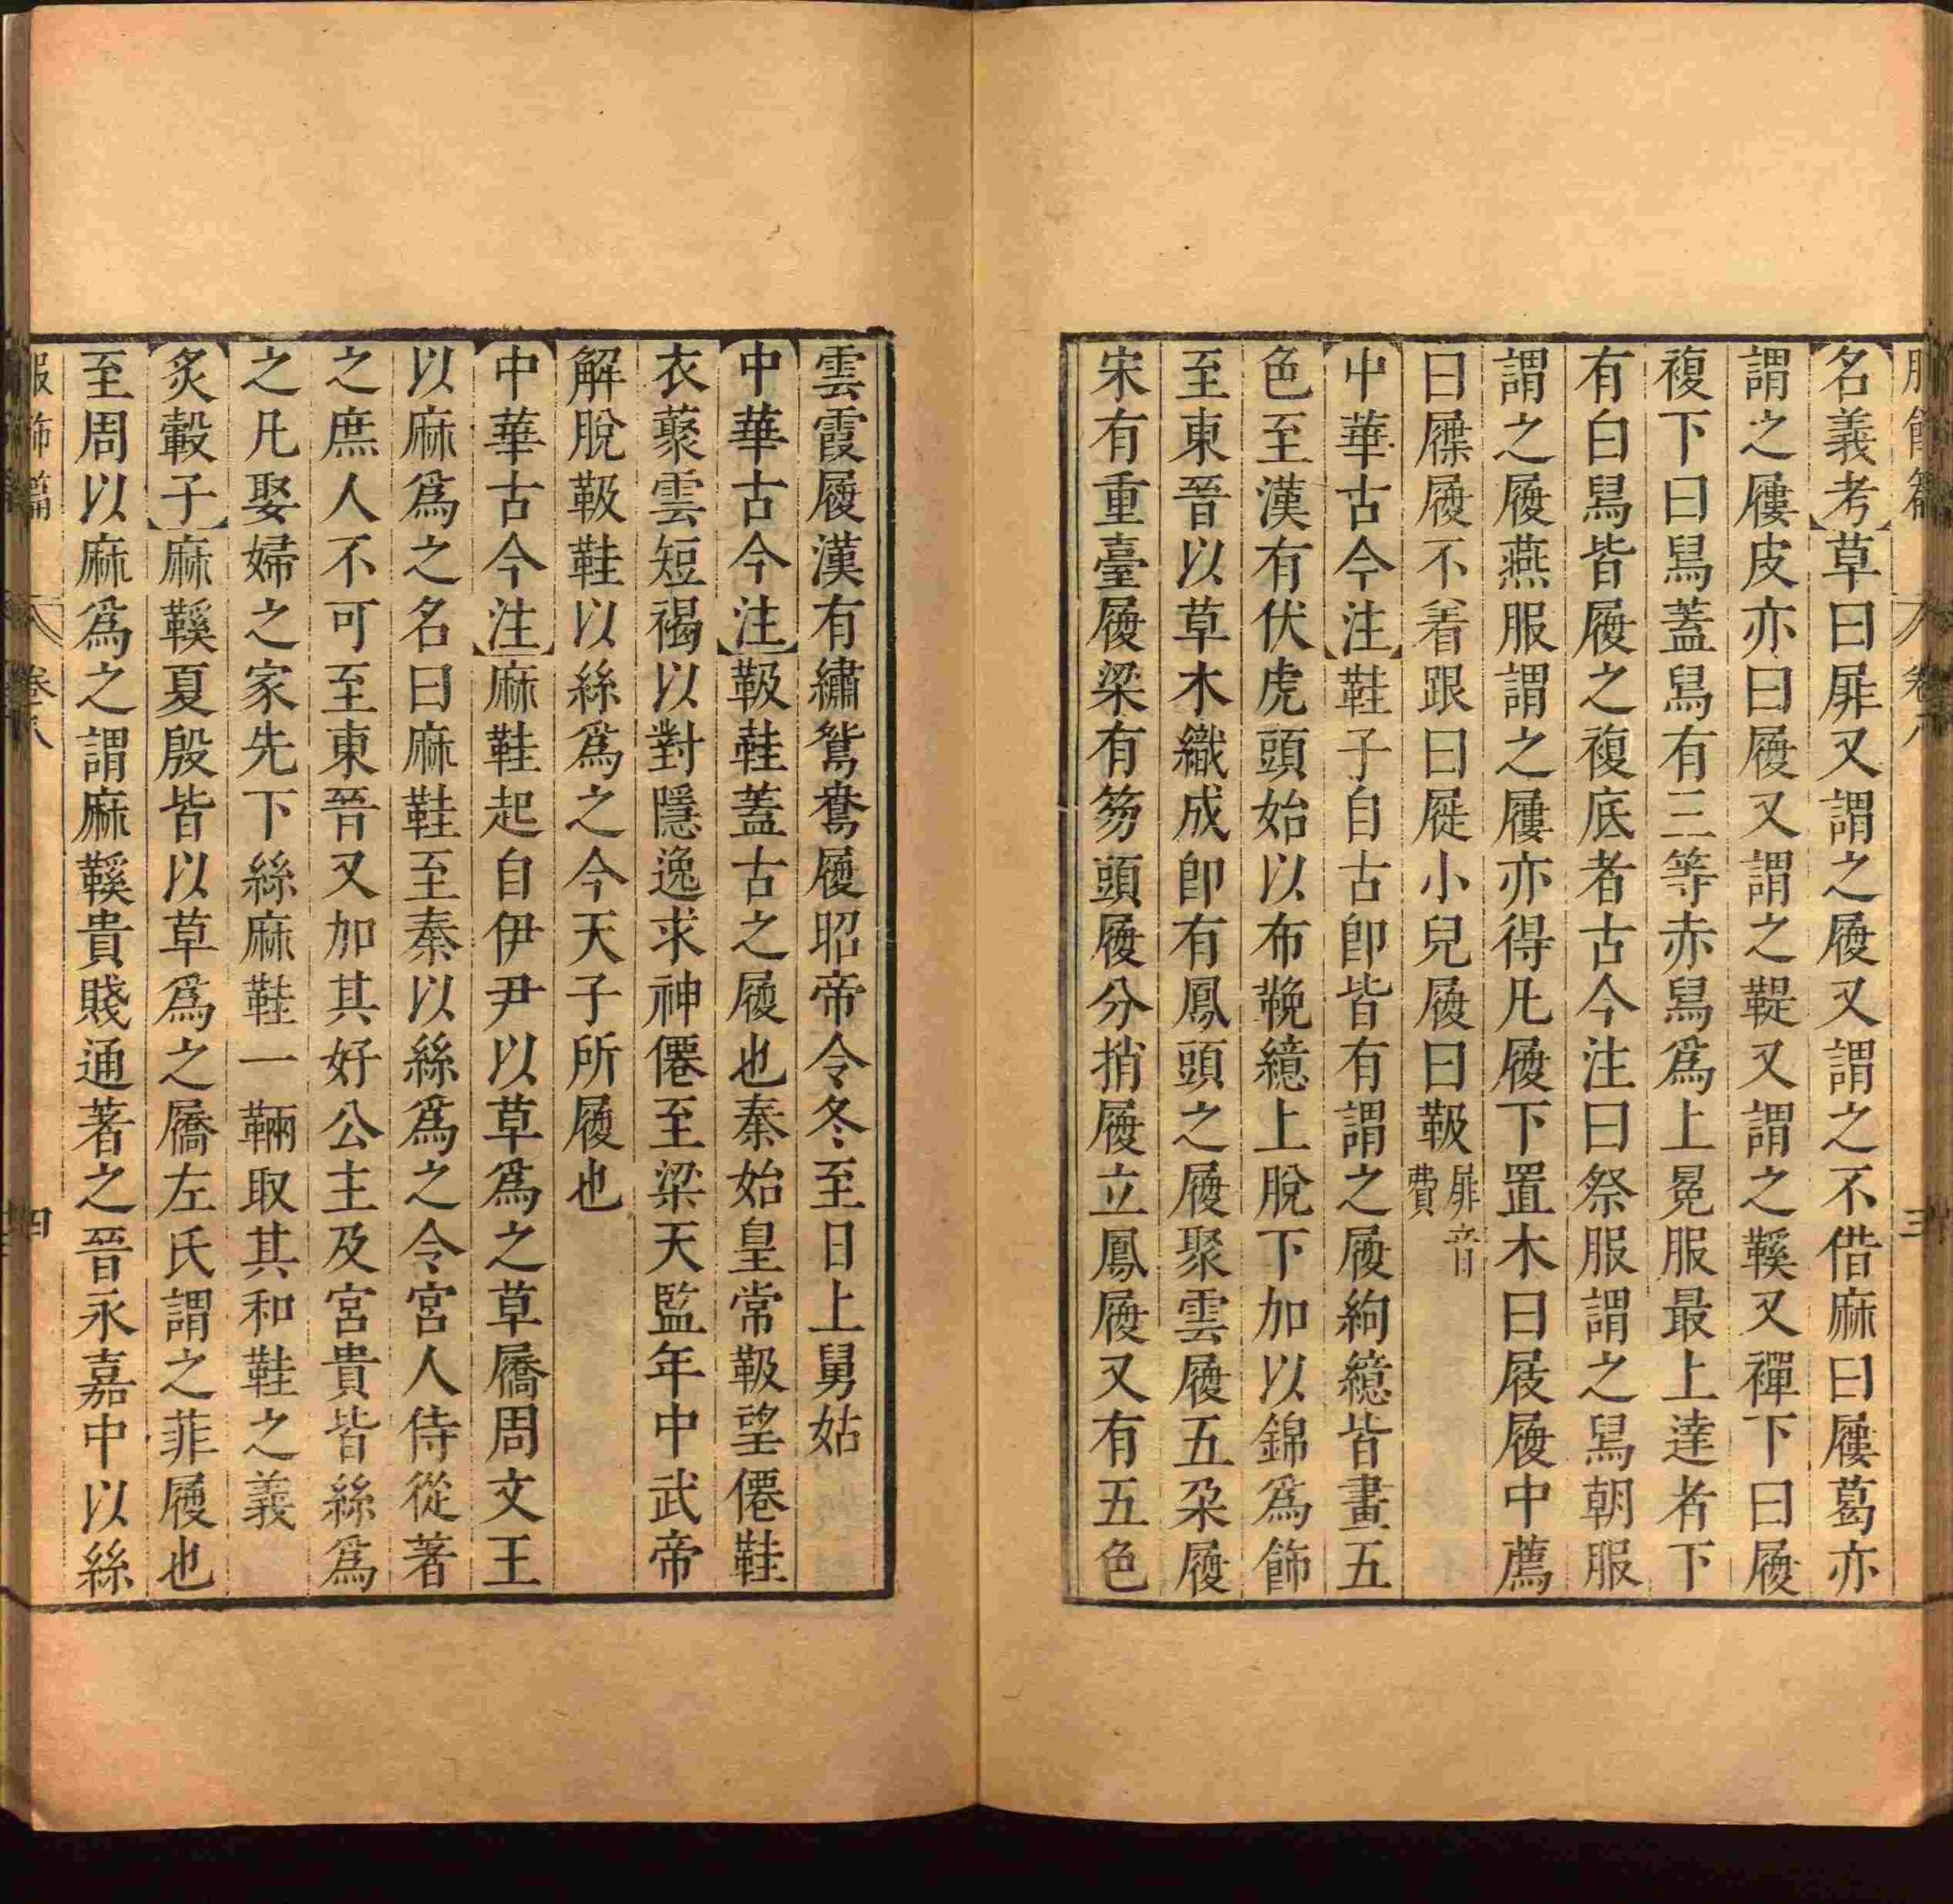 服飾篇 卷八 三
名義考草曰屝又謂之履又謂之不借麻曰屨葛亦
謂之屨皮亦曰履又謂之鞮又謂之鞵又襌下曰履
複下曰舄蓋舄有三等赤舄爲上冕服最上達者下
有白舄皆履之複底者古今注曰祭服謂之舄朝服
謂之履燕服謂之屨亦得凡履下置木曰屐履中薦
曰屧履不着跟曰屣小兒履曰靸屝音費
中華古今注鞋子自古卽皆有謂之履絇繶皆畫五
色至漢有伏虎頭始以布鞔繶上脫下加以錦爲飾
至東晉以草木織成卽有鳳頭之履聚雲履五朶履
宋有重臺履梁有笏頭履分捎履立鳳履又有五色
雲霞履漢有繡鴛鴦履昭帝令冬至日上舅姑
中華古今注靸鞋蓋古之履也秦始皇常靸望僊鞋
衣藂雲短褐以對隱逸求神僊至梁天監年中武帝
解脫靸鞋以絲爲之今天子所履也
中華古今注麻鞋起自伊尹以草爲之草屩周文王
以麻爲之名曰麻鞋至秦以絲爲之令宮人侍從著
之庶人不可至東晉又加其好公主及宮貴皆絲爲
之凡娶婦之家先下絲麻鞋一䩫取其和鞋之義
炙轂子麻鞵夏殷皆以草爲之屩左氏謂之菲履也
至周以麻爲之謂麻鞵貴賤通著之晉永嘉中以絲
服飾篇 卷八 四